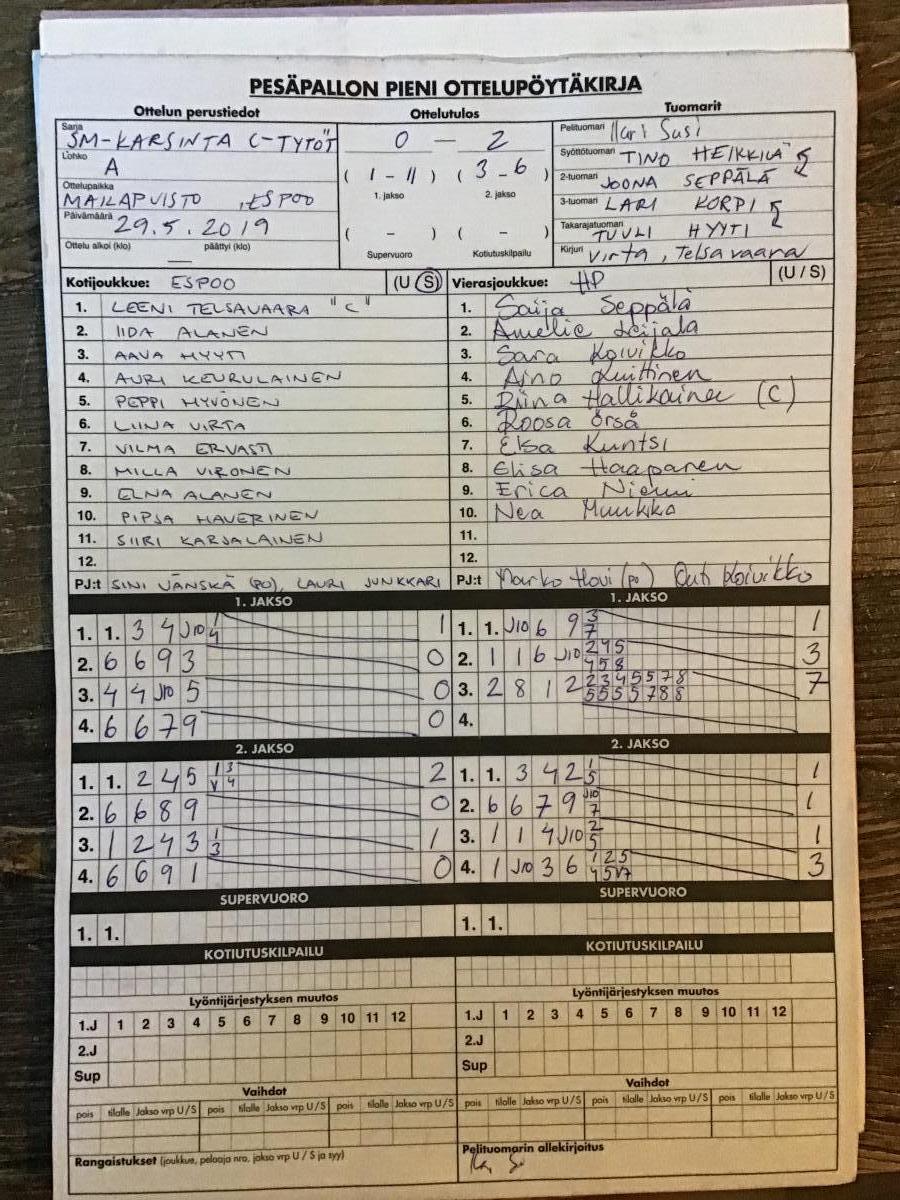 PESÄPALLON PIENI OTTELUPÖYTÄKIRJA
Ottelun perustiedot Ottelutulos Tuomarit
Sarja SM-KARSINTA C-TYTÖT
Lohko A
Ottelupaikka MAILAPUISTO, ESPOO
Päivämäärä 29.5.2019
Ottelu alkoi (klo) — päättyi (klo)
0 — 2
(1 - 11) (3 - 6)
1. jakso 2. jakso
( - ) ( - )
Supervuoro Kotiutuskilpailu
Pelituomari Susi
Syöttötuomari TINO HEIKKILÄ
2-tuomari JOONA SEPPÄLÄ
3-tuomari LARI KORPI
Takarajatuomari TUULI HYYTI
Kirjuri Virta, Telsavaara
Kotijoukkue: ESPOO (U S)
1. LEENI TELSAVAARA "C"
2. IIDA ALANEN
3. AAVA HYYTI
4. AURI KEURULAINEN
5. PEPPI HYVÖNEN
6. LIINA VIRTA
7. VILMA ERVASTI
8. MILLA VIRONEN
9. ELNA ALANEN
10. PIPSA HAVERINEN
11. SIIRI KARJALAINEN
12.
PJ:t SINI JÄNSKÄ (PO), LAURI JUNKKARI
Vierasjoukkue: HP (U / S)
1. Saija Seppälä
2. Amelie Leijala
3. Sara Koivikko
4. Aino Kuittinen
5. Riina Hallikainen (C)
6. Roosa Örså
7. Elsa Kuntsi
8. Elisa Haapanen
9. Erica Niemi
10. Nea Muukko
11.
12.
PJ:t Marko Hovi (po) Outi Koivikko
1. JAKSO
1. 1. 3 4 J10 1 1
4
2. 6 6 9 3 0
3. 4 4 J10 5 0
4. 6 6 7 9 0
1. JAKSO
1. 1. J10 6 9 3 1
7
2. 1 1 6 J10 2 4 5 3
4 5 8
3. 2 8 1 2 2 3 4 5 5 7 8 7
5 5 5 5 7 8 8
4.
2. JAKSO
1. 1. 2 4 5 1 3 2
V 4
2. 6 6 8 9 0
3. 1 2 4 3 1 1
3
4. 6 6 9 1 0
2. JAKSO
1. 1. 3 4 2 1 1
5
2. 6 6 7 9 J10 1
7
3. 1 1 4 J10 2 1
5
4. 1 J10 3 6 1 2 5 3
4 5 V7
SUPERVUORO
1. 1.
SUPERVUORO
1. 1.
KOTIUTUSKILPAILU
KOTIUTUSKILPAILU
Lyöntijärjestyksen muutos
1.J 1 2 3 4 5 6 7 8 9 10 11 12
2.J
Sup
Lyöntijärjestyksen muutos
1.J 1 2 3 4 5 6 7 8 9 10 11 12
2.J
Sup
Vaihdot
pois tilalle Jakso vrp U/S pois tilalle Jakso vrp U/S pois tilalle Jakso vrp U/S
Vaihdot
pois tilalle Jakso vrp U/S pois tilalle Jakso vrp U/S pois tilalle Jakso vrp U/S
Rangaistukset (joukkue, pelaaja nro, jakso vrp U / S ja syy)
Pelituomarin allekirjoitus